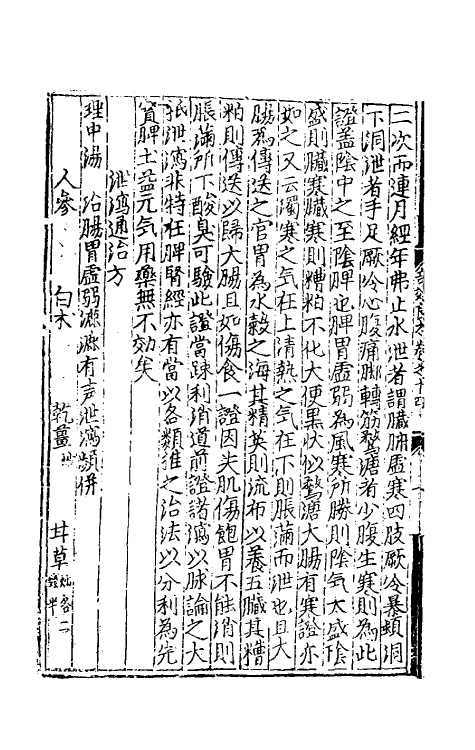 二次而連月經年弗止水泄者謂臟腑虛寒四肢厥冷暴頻洞
下洞泄者手足厥冷心腹痛脚轉筋鶩溏者少腹生寒則為此
證盖陰中之至陰脾也脾胃虛弱為風寒所勝則陰气太盛陰
盛則臟寒臟寒則糟粕不化大便黒状似鶩溏大腸有寒證亦
如之又云濁寒之气在上清熱之气在下則脹滿而泄也且大
腸為傳送之官胃為水穀之海其精英則流布以養五臟其糟
粕則傳送以歸大腸且如傷食一證因失肌傷飽胃不能消則
脹滿所下酸臭可驗此證當踈利消道前證諸瀉以脉論之大
抵泄瀉非特在脾腎經亦有當以各類推之治法以分利為先
實脾土益元气用藥無不効矣
泄瀉通治方
理中湯 治腸胃虛弱漉漉有声泄瀉頻併
人參 白术 乾薑 甘草